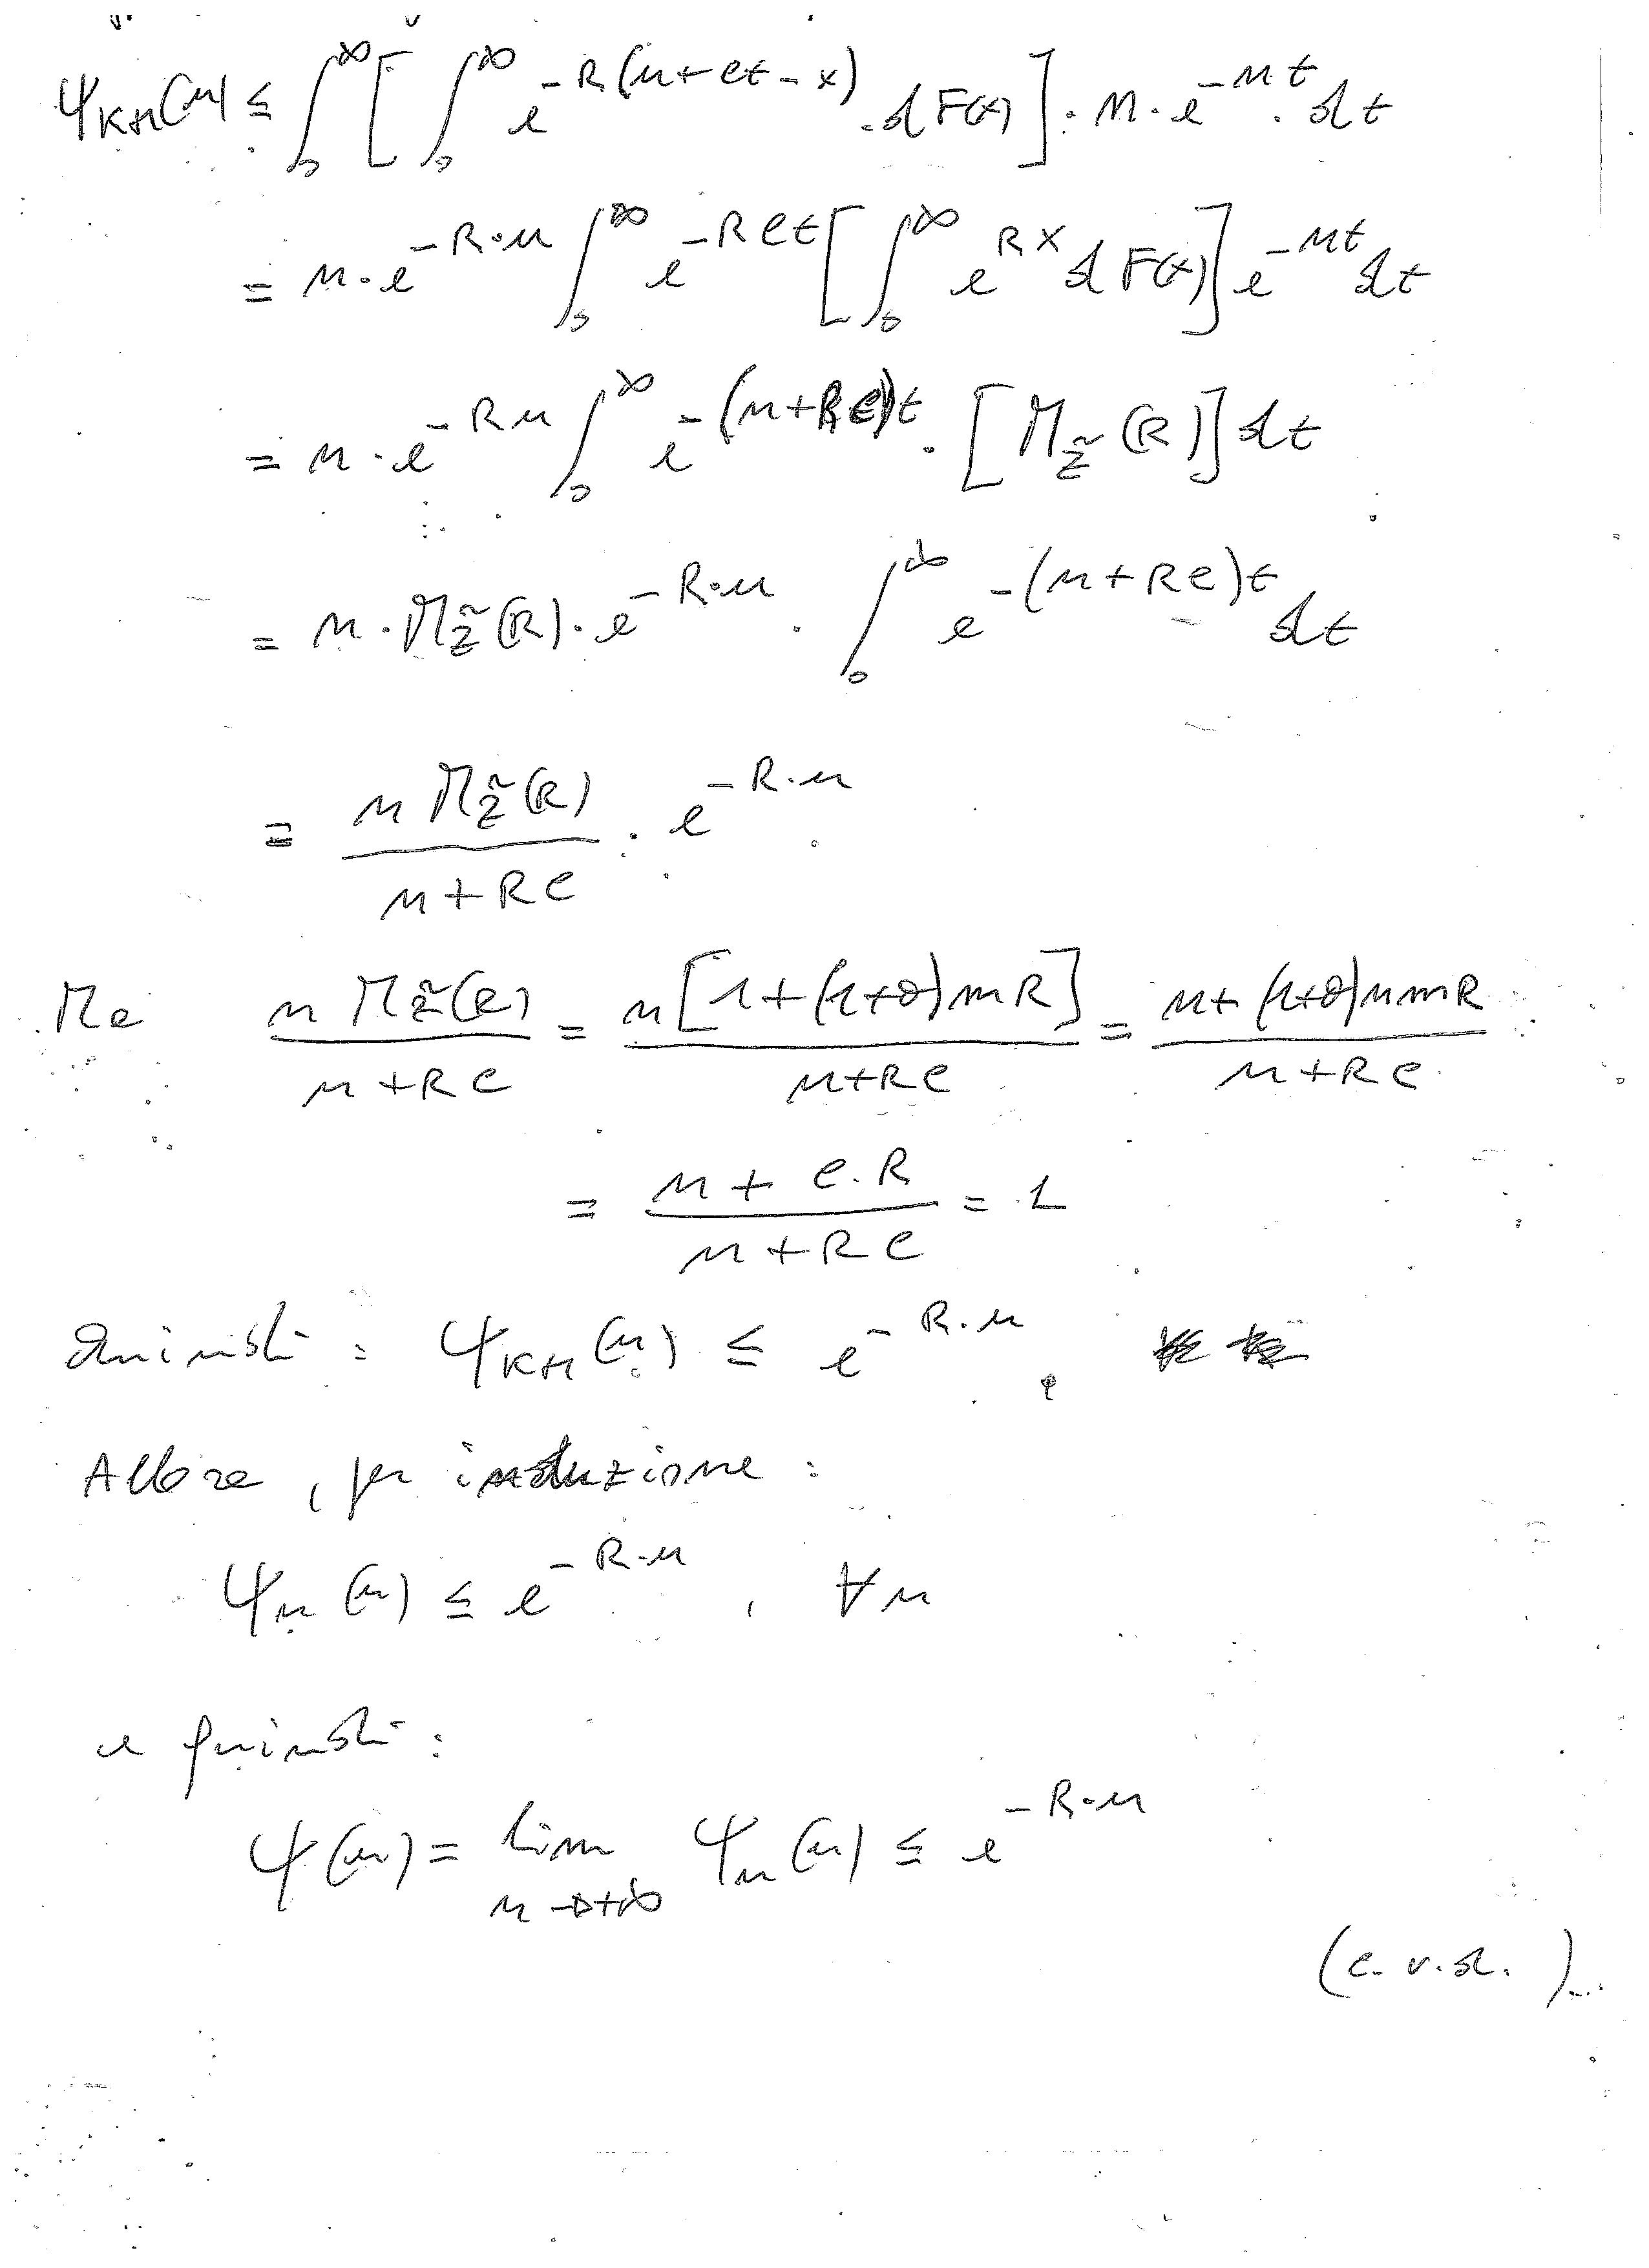 ψ_{K+1}(u) ≤ ∫_0^∞ [ ∫_0^∞ e^{-R(u+ct-x)} · dF(x) ] · n · e^{-nt} · dt
= n · e^{-R·u} ∫_0^∞ e^{-Rct} [ ∫_0^∞ e^{Rx} dF(x) ] e^{-nt} dt
= n · e^{-Ru} ∫_0^∞ e^{-(n+Rc)t} · [ M_{z̃}(R) ] dt
= n · M_{z̃}(R) · e^{-R·u} · ∫_0^∞ e^{-(n+Rc)t} dt
= \frac{n M_{z̃}(R)}{n+Rc} · e^{-R·u}
Ma \frac{n M_{z̃}(R)}{n+Rc} = \frac{n[1+(1+θ)mR]}{n+Rc} = \frac{n+(1+θ)nmR}{n+Rc}
= \frac{n+c·R}{n+Rc} = 1
Quindi : ψ_{K+1}(u) ≤ e^{-R·u} ,
Allora , per induzione :
ψ_n(u) ≤ e^{-R·u} , ∀n
e quindi :
ψ(u) = lim_{n→+∞} ψ_n(u) ≤ e^{-R·u}
(c.v.d.)